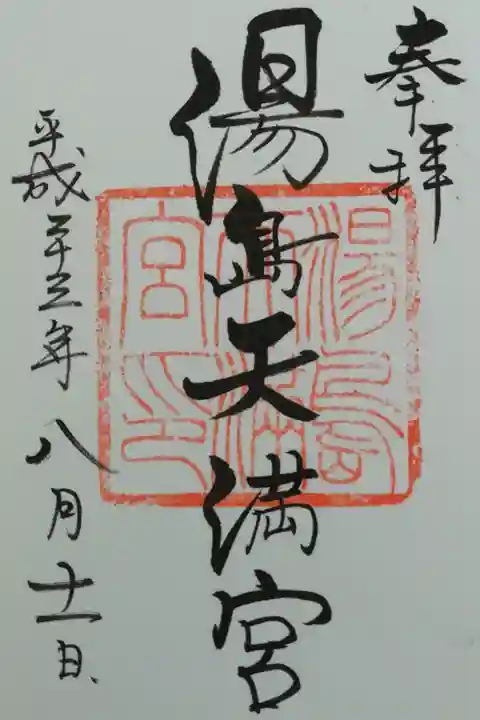 奉拝
湯島天満宮
平成二十三年八月十一日
湯島
天満
宮之印